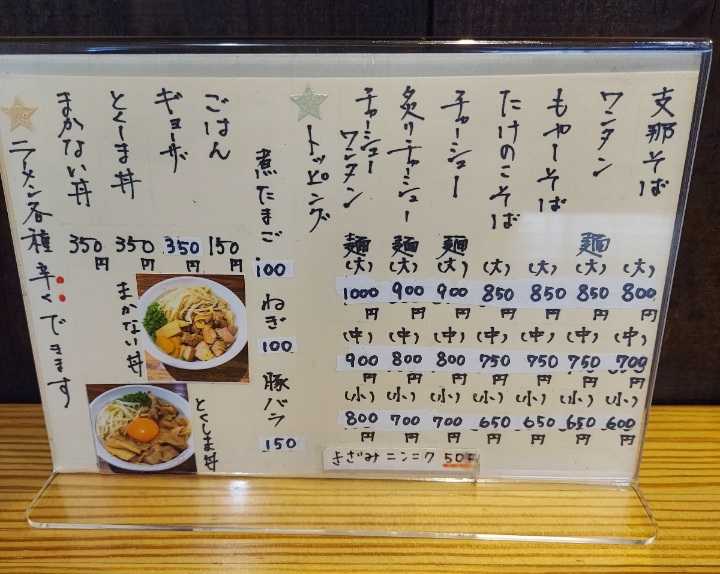 支那そば
(大) 800円
(中) 700円
(小) 600円
ワンタン麺
(大) 850円
(中) 750円
(小) 650円
もやしそば
(大) 850円
(中) 750円
(小) 650円
たけのこそば
(大) 850円
(中) 750円
(小) 650円
チャーシュー麺
(大) 900円
(中) 800円
(小) 700円
炙りチャーシュー麺
(大) 900円
(中) 800円
(小) 700円
チャーシューワンタン麺
(大) 1000円
(中) 900円
(小) 800円
きざみニンニク 50円
トッピング
煮たまご 100
ねぎ 100
豚バラ 150
ごはん 150円
ギョーザ 350円
とくしま丼 350円
まかない丼 350円
まかない丼
とくしま丼
ラーメン各種辛くできます